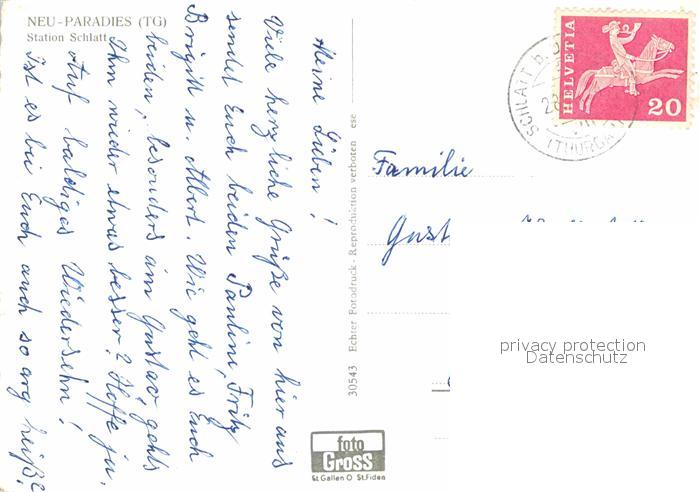 NEU-PARADIES (TG)
Station Schlatt
Meine Lieben!
Viele herzliche Grüße von hier aus
sendet Euch beiden Pauline, Fritz
Brigitt u. Albert. Wie geht es Euch
beiden, besonders am Gustav, gehts
Ihm wieder etwas besser? Hoffe ja,
Auf baldiges Wiedersehn!
Ist es bei Euch auch so arg heiß?
30543 Echter Fotodruck - Reproduktion verboten
ese
foto
Gross
St Gallen O St.Fiden
HELVETIA
20
SCHLATT b. D
(THURGAU)
Familie
Gust
privacy protection
Datenschutz